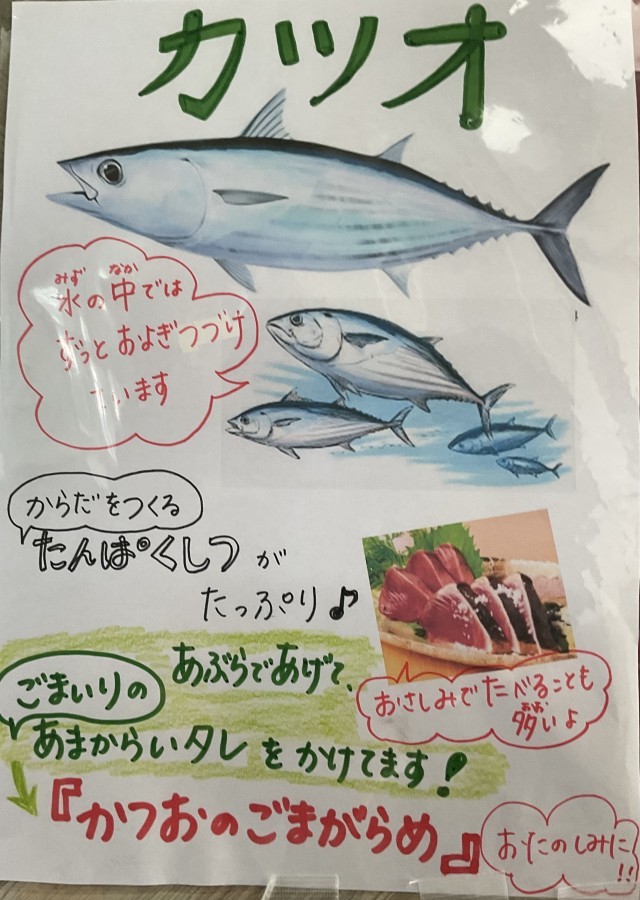 カツオ
水の中では
ずっとおよぎつづけ
ています
からだをつくる
たんぱくしつが
たっぷり♪
おさしみでたべることも
多いよ
あぶらであげて、
ごまいりの
あまからいタレをかけてます!
『かつおのごまがらめ』
おたのしみに!!